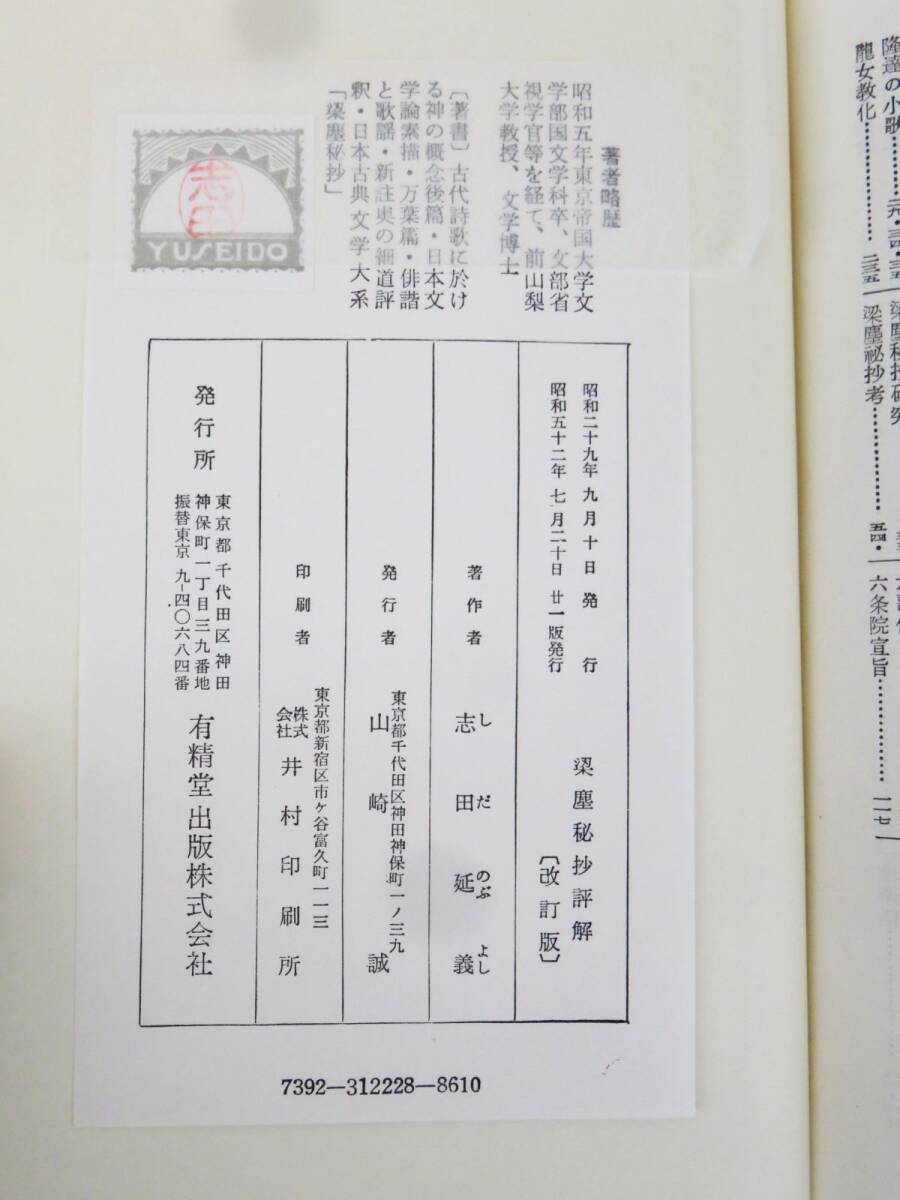 隆達の小歌
龍女教化………………二三五
梁塵秘抄研究
梁塵祕抄考………………五四・
六条院宣旨………………一一七
著者略歴
昭和五年東京帝国大学文
学部国文学科卒、文部省
視学官等を経て、前山梨
大学教授、文学博士
〔著書〕古代詩歌に於け
る神の概念後篇・日本文
学論素描・万葉篇・俳諧
と歌謡・新註奥の細道評
釈・日本古典文学大系
「梁塵秘抄」
志田
YUSEIDO
昭和二十九年九月十日発行
昭和五十二年七月二十日廿一版発行
梁塵秘抄評解
〔改訂版〕
著作者 志田延義
しだのぶよし
発行者
東京都千代田区神田神保町一ノ三九
山崎誠
印刷者
東京都新宿区市ケ谷富久町一一三
株式会社井村印刷所
発行所
東京都千代田区神田
神保町一丁目三九番地
振替東京九-四〇六八四番
有精堂出版株式会社
7392—312228—8610